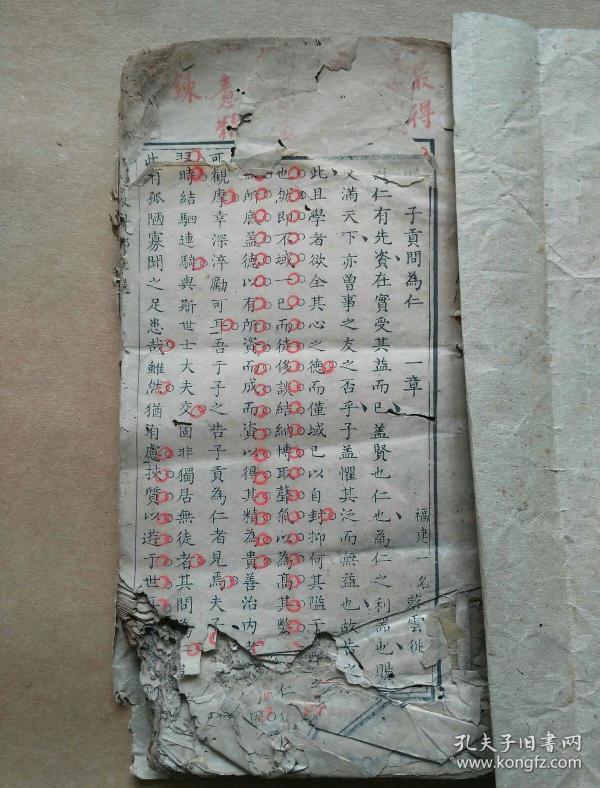 最得
意精
鍊
子貢問為仁 一章
福建一名蔡雲從
仁有先資在實受其益而已蓋賢也仁也為仁之利器也賜
滿天下亦曾事之友之否乎子蓋懼其泛而無益也故告之
此且學者欲全其心之德而僅域已以自封抑何其隘于
也然即不域一已而徒侈談結納博取聲氣以為高其弊
所底蓋德以有所資而成而資以得其精為貴善治內者
可觀摩幸深淬勵可耳吾于子之告子貢為仁者見焉夫子
時結駟連騎與斯世士大夫交固非獨居無徒者其問為
此有孤陋寡聞之足患哉雖然猶有慮挾質以遊于世
仁
孔夫子旧书网
www.kongfz.com